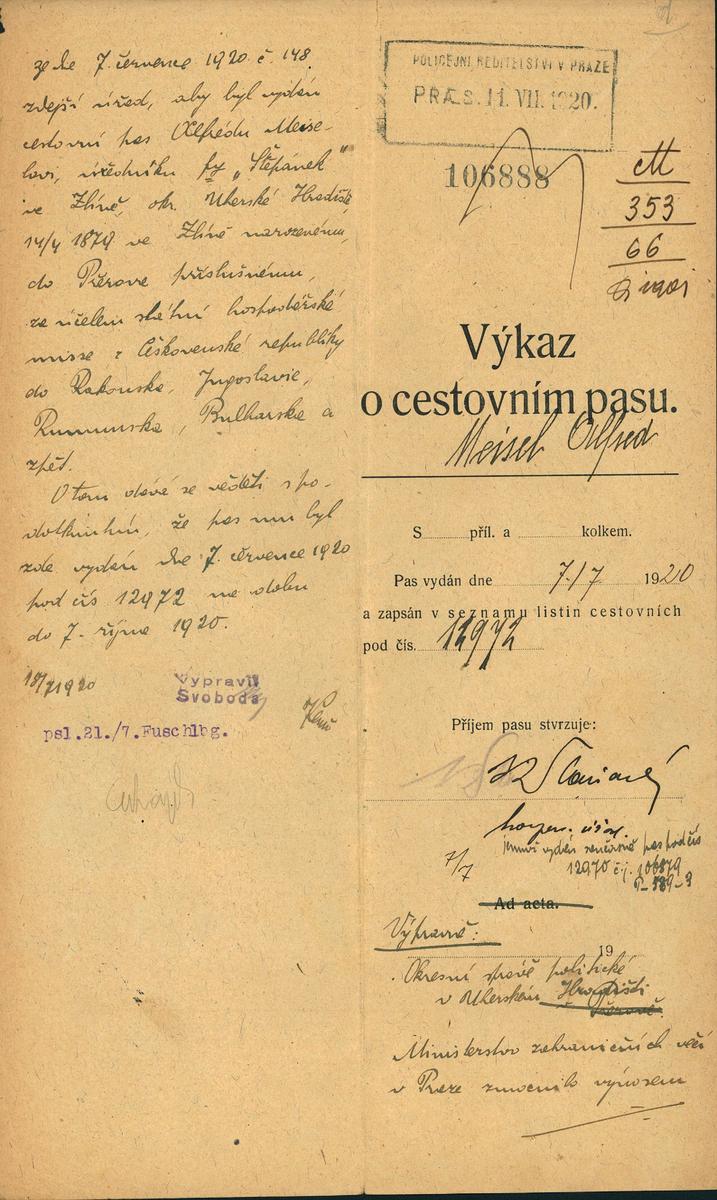 POLICEJNÍ ŘEDITELSTVÍ V PRAZE
PRÆS. 11. VII. 1920.
106888
M
353
66
Výkaz
o cestovním pasu.
Meisel Alfred
S příl. a kolkem.
Pas vydán dne 7./7 1920
a zapsán v seznamu listin cestovních
pod čís. 12972
Příjem pasu stvrzuje:
7/7
pas pod čís
12970 č.j. 106879
P-589-3
Ad acta.
Výpravě:
19
Okresní správě politické
v Uherském Hradišti
Přerově.
Ministerstvo zahraničních věcí
v Praze zmocnilo výnosem
ze dne 7. července 1920 č. 148.
zdejší úřad, aby byl vydán
cestovní pas Alfredu Meise-
lovi, úředníku fy „Štěpánek"
ve Zlíně, okr. Uherské Hradiště,
14/4 1879 ve Zlíně narozenému,
do Přerova příslušnému,
za účelem státní hospodářské
misse z Československé republiky
do Rakouska, Jugoslavie,
Rumunska, Bulharska a
zpět.
O tom dává se věděti s po-
dotknutím, že pas mu byl
zde vydán dne 7. července 1920
pod čís 12972 na dobu
do 7. října 1920.
18/7 1920
Vypravil
Svoboda
psl.21./7.Fuschlbg.